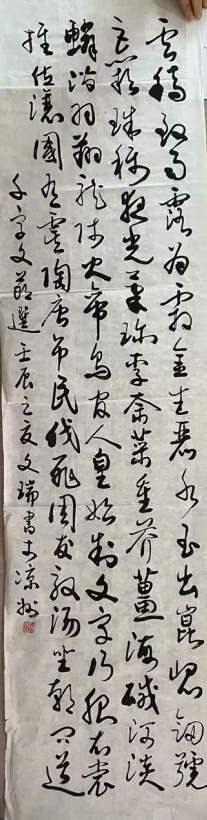 云騰致雨露為霜金生麗水玉出崑岡劍號
巨闕珠稱夜光果珍李柰菜重芥薑海鹹河淡
鱗潛羽翔龍師火帝鳥官人皇始制文字乃服衣裳
推位讓國有虞陶唐吊民伐罪周發殷湯坐朝問道
千字文節選壬辰之夏文瑞書於涼州